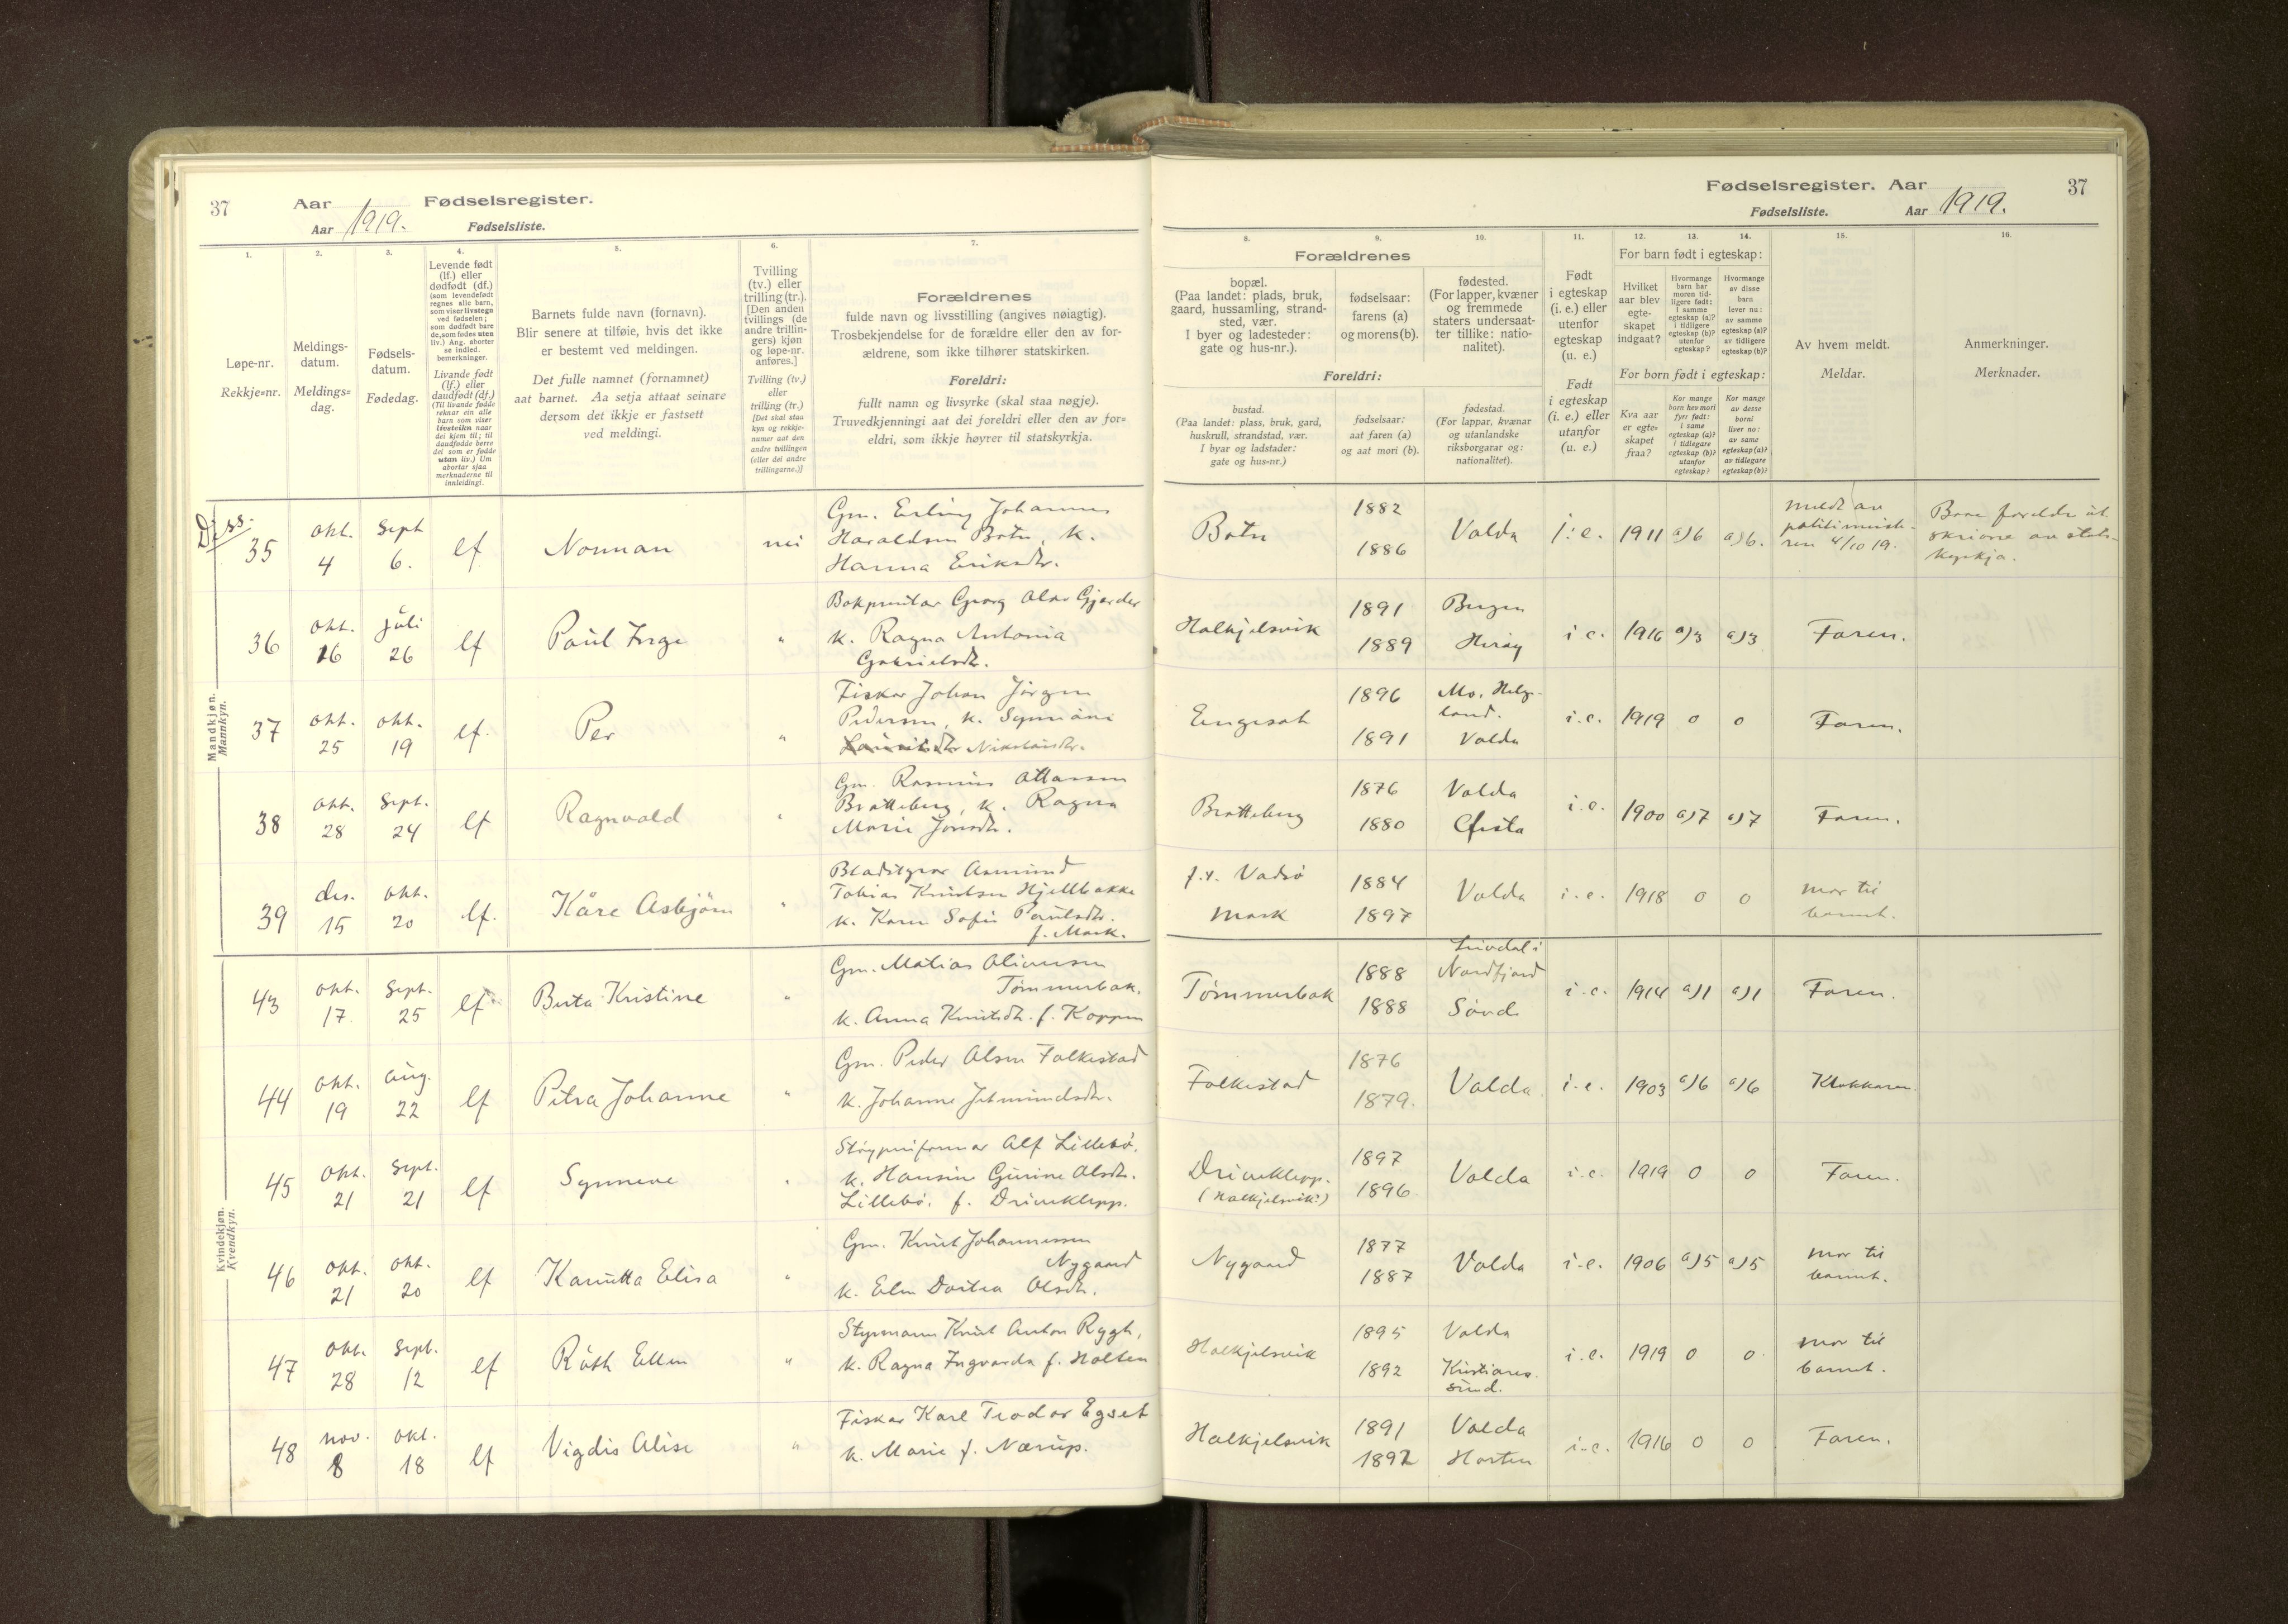 37 Aar Fødselsregister.
Aar 1919. Fødselsliste.
Fødselsregister. Aar 37
Fødselsliste. Aar 1919.
1. 2. 3. 4. 5. 6. 7.
Løpe-nr.
Rekkje=nr.
Meldings-
datum.
Meldings=
dag.
Fødsels-
datum.
Fødedag.
Levende født
(lf.) eller
dødfødt (df.)
(som levendefødt
regnes alle barn,
som viser livstegn
ved fødselen;
som dødfødt bare
de, som fødes uten
liv.) Ang. aborter
se indled.
bemerkninger.
Livande født
(lf.) eller
daudfødt (df.)
(Til livande fødde
reknar ein alle
barn som viser
livsteikn naar
dei kjem til; til
daudfødde berre
dei som er fødde
utan liv.) Um
abortar sjaa
merknaderne til
innleidingi.
Barnets fulde navn (fornavn).
Blir senere at tilføie, hvis det ikke
er bestemt ved meldingen.
Det fulle namnet (fornamnet)
aat barnet. Aa setja attaat seinare
dersom det ikkje er fastsett
ved meldingi.
Tvilling
(tv.) eller
trilling (tr.).
[Den anden
tvillings (de
andre trillin-
gers) kjøn
og løpe-nr.
anføres.]
Tvilling (tv.)
eller
trilling (tr.)
[Det skal staa
kyn og rekkje-
numer aat den
andre tvillingen
(eller dei andre
trillingarne.)]
Forældrenes
fulde navn og livsstilling (angives nøiagtig).
Trosbekjendelse for de forældre eller den av for-
ældrene, som ikke tilhører statskirken.
Foreldri:
fullt namn og livsyrke (skal staa nøgje).
Truvedkjenningi aat dei foreldri eller den av for=
eldri, som ikkje høyrer til statskyrkja.
8. 9. 10. 11. 12. 13. 14. 15. 16.
Forældrenes
bopæl.
(Paa landet: plads, bruk,
gaard, hussamling, strand-
sted, vær.
I byer og ladesteder:
gate og hus-nr.).
fødselsaar:
farens (a)
og morens (b).
fødested.
(For lapper, kvæner
og fremmede
staters undersaat-
ter tillike: natio-
nalitet).
Foreldri:
bustad.
(Paa landet: plass, bruk, gard,
huskrull, strandstad, vær.
I byar og ladstader:
gate og hus-nr.)
fødselsaar:
aat faren (a)
og aat mori (b).
fødestad.
(For lappar, kvænar
og utanlandske
riksborgarar og:
nationalitet).
Født
i egteskap
(i. e.) eller
utenfor
egteskap
(u. e.)
Født
i egteskap
(i. e.) eller
utanfor
(u. e.)
For barn født i egteskap:
Hvilket
aar blev
egte-
skapet
indgaat?
Hvormange
barn har
moren tid-
ligere født:
i samme
egteskap (a)?
i tidligere
egteskap (b)?
utenfor
egteskap?
Hvormange
av disse
barn
lever nu:
av samme
egteskap (a)?
av tidligere
egteskap (b)?
For born født i egteskap:
Kva aar
er egte=
skapet
fraa?
Kor mange
born hev mori
fyrr født:
i same
egteskap (a)?
i tidlegare
egteskap (b)?
utanfor
egteskap?
Kor mange
av desse
borni
liver no:
av same
egteskap (a)?
av tidlegare
egteskap (b)?
Av hvem meldt.
Meldar.
Anmerkninger.
Merknader.
Mandkjøn.
Mannkyn.
Diss.
35 okt. 4 Sept 6. lf Norman nei Gm. Erling Johannes
Haraldsen Botn, k.
Hanna Eriksdtr. Botn 1882 1886 Volda i. e. 1911 a)6 a)6. meldt av
politimeist-
ren 4/10 19. Båe foreldr ut
skrivne av stats-
kyrkja.
36 okt. 16 juli 26 lf Paul Inge " Bokprentar Georg Olav Gjerder
k. Ragna Antonia
Gabrielsdtr. Halkjelsvik 1891 1889 Bergen Herøy i e. 1916 a)3 a)3 Faren.
37 okt. 25 okt. 19 lf. Per " Fiskar Johan Jørgen
Pedersen, k. Synnøni
Nikolaisdtr. Engeset 1896 1891 Mo, Helge-
land. Volda i. e. 1919 0 0 Faren.
38 okt. 28 Sept. 24 lf Ragnvald " Gm. Rasmus Ottarsen
Bratteberg, k. Ragna
Marie Jonsdtr. Bratteberg 1876 1880 Volda Ørsta i. e. 1900 a)7 a)7 Faren.
39 des. 15 okt. 20 lf. Kåre Asbjörn " Bladstyrar Asmund
Tobias Knutsen Hjellbakke
k. Karen Sofie Paulsdtr.
f. Mork. f.t. Vadsö Mork 1884 1897 Volda i. e. 1918 0 0 mor til
barnet.
Kvindekjøn.
Kvendkyn.
43 okt. 17 Sept. 25 lf Berta Kristine " Gm. Matias Oliversen
Tømmerbak.
k. Anna Knutsdtr. f. Koppen Tömmerbak 1888 1888 Nordfjord i. e. 1914 a)1 a)1 Faren.
44 okt. 19 aug. 22 lf Petra Johanne " Gm. Peder Olsen Folkestad
k. Johanne Jetmundsdtr. Folkestad 1876 1879. Volda i. e. 1903 a)6 a)6 Klokkaren
45 okt. 21 Sept. 21 lf Synneve " Alf Lillebø.
k. Hansine Gurine Olsdtr.
Lillebø. f. Driveklepp. Driveklepp.
(Halkjelsvik?) 1897 1896 Volda i. e. 1919 0 0 Faren.
46 okt. 21 okt. 20 lf Kanutta Elisa " Gm. Knut Johannessen
Nygaard
k. Elen Dortea Olsdtr. Nygaard 1877 1887 Volda i. e. 1906 a)5 a)5 mor til
barnet.
47 okt. 28 Sept. 12 lf Rúth Ellen " Styrmann Knut Anton Rygh,
k. Ragna Ingvarda f. Holten Halkjelsvik 1895 1892 Volda Kristians-
sund. i. e. 1919 0 0 mor til
barnet.
48 nov. 8 okt. 18 lf Vigdis Alise " Fiskar Karl Teodor Egset
k. Marie f. Nærup. Halkjelsvik 1891 1892 Volda Horten i. e. 1916 0 0 Faren.